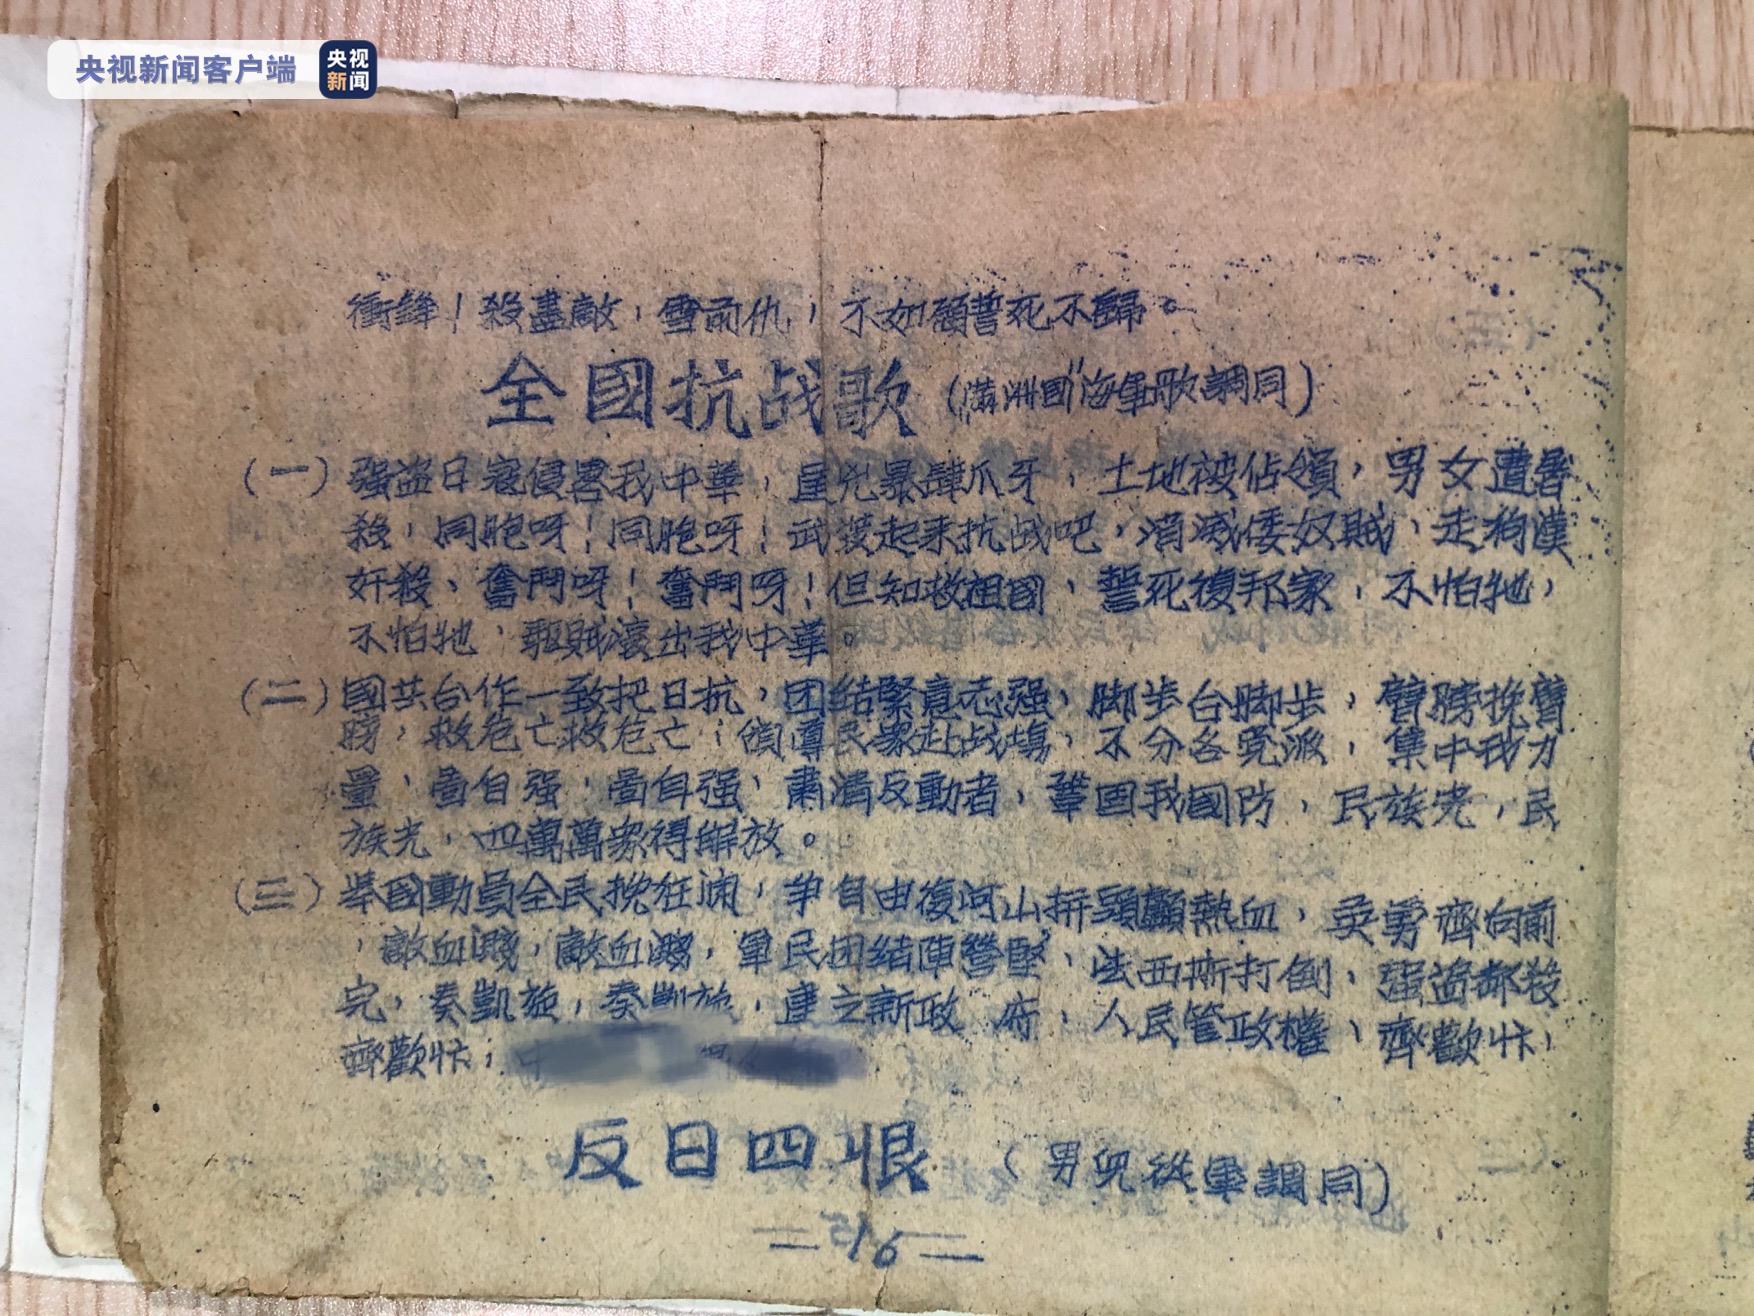 央视新闻客户端
央视
新闻
衝鋒！殺盡敵，雪前仇，不如願誓死不歸。
全國抗战歌（"满洲國"海軍歌調同）
（一）强盗日寇侵害我中華，逞兇暴肆爪牙，土地被佔領，男女遭害
殺，同胞呀！同胞呀！武裝起来抗战吧，消滅倭奴賊、走狗漢
奸殺、奮鬥呀！奮鬥呀！但知救祖國、誓死復邦家，不怕牠，
不怕牠，驅賊滾出我中華。
（二）國共合作一致把日抗，团结緊意志强、脚步合脚步，臂膀挽臂
膀，救危亡救危亡；領導民衆赴战塲、不分各党派，集中我力
量，啚自强，啚自强，肅清反動者，鞏固我國防，民族光，民
族光，四萬萬衆得解放。
（三）举國動員全民挽狂澜，争自由復河山拼頭顱熱血，英勇齊向前
，敵血濺，敵血濺，軍民团结陣營堅、法西斯打倒，强盗都殺
完，奏凱旋，奏凱旋，建立新政 府，人民管政權、齊歡忭，
齊歡忭；
反日四恨 （男兒從軍調同）